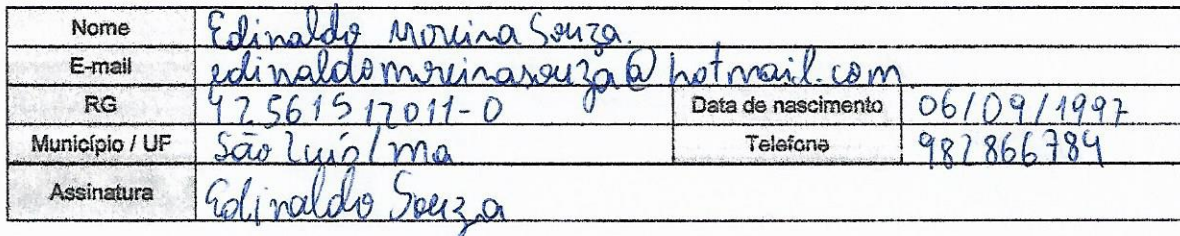 Nome Edinaldo Moreira Souza.
E-mail edinaldomoreirasouza@hotmail.com
RG 425615172011-0 Data de nascimento 06/09/1997
Município / UF São Luís/ma Telefone 982866784
Assinatura Edinaldo Souza